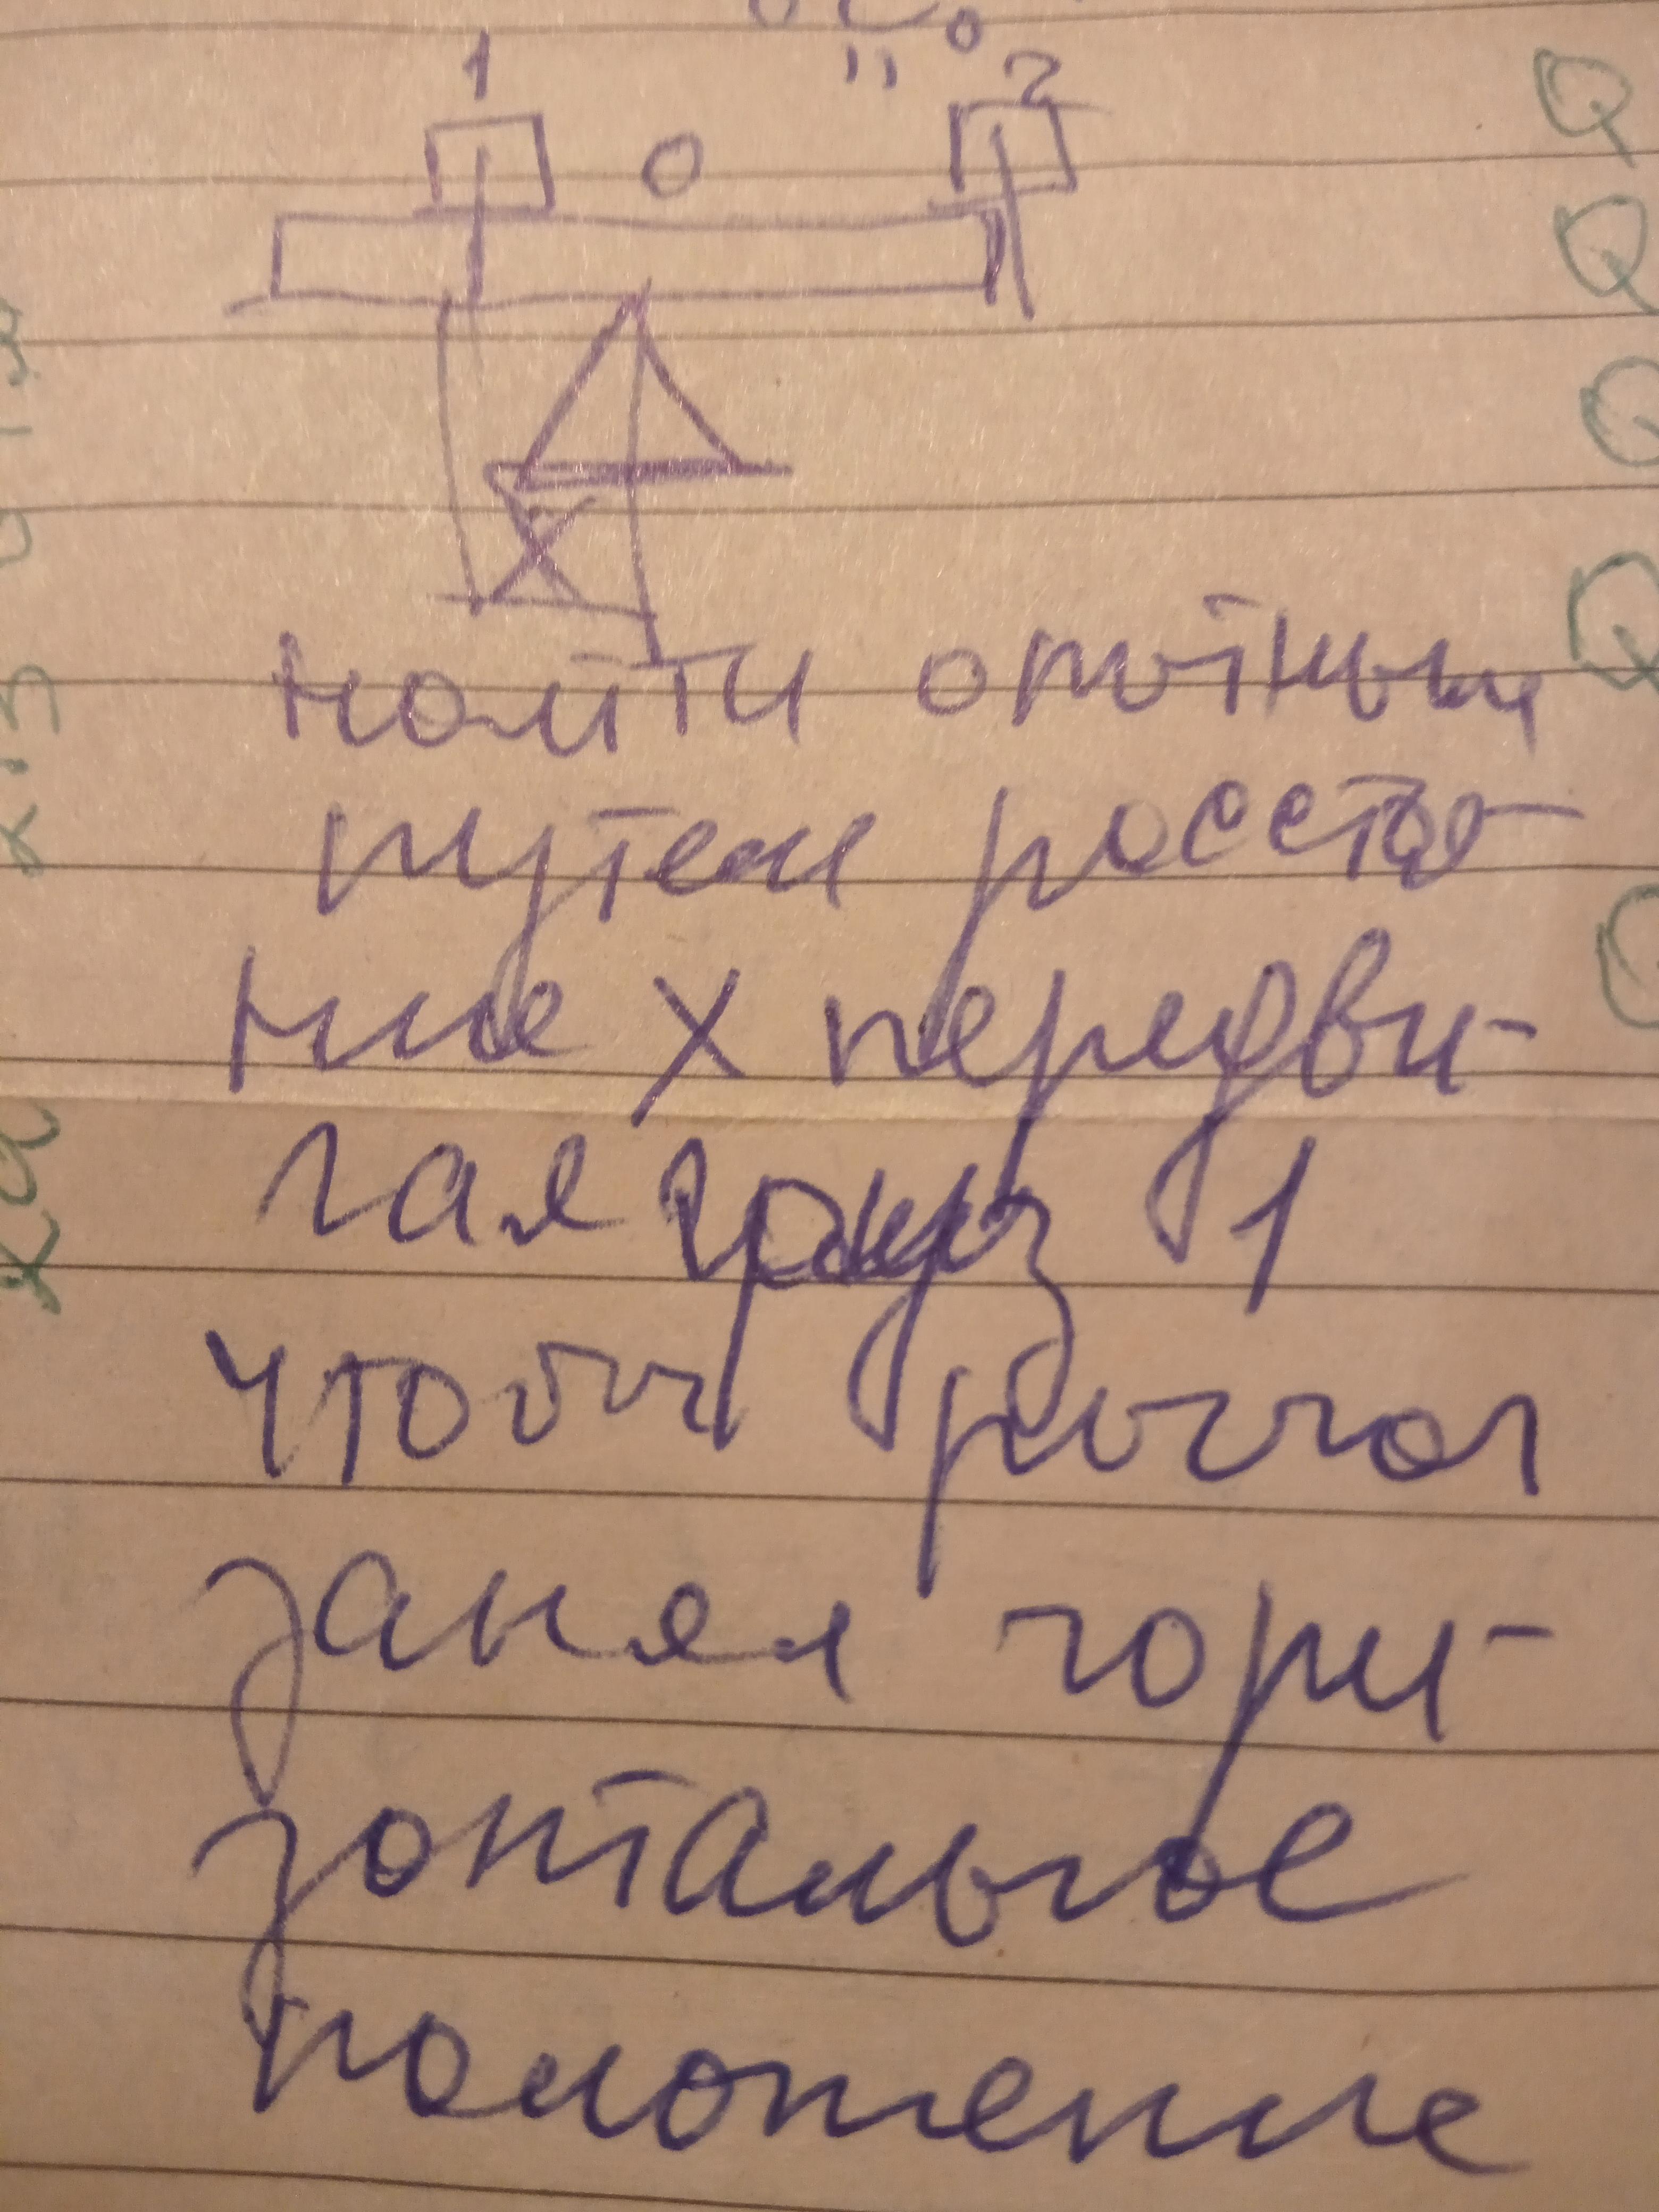 1 2
О
х
найти опытным
путем расстоя-
ние х передви-
гая груз 1
чтобы рычаг
занял гори-
зонтальное
положение